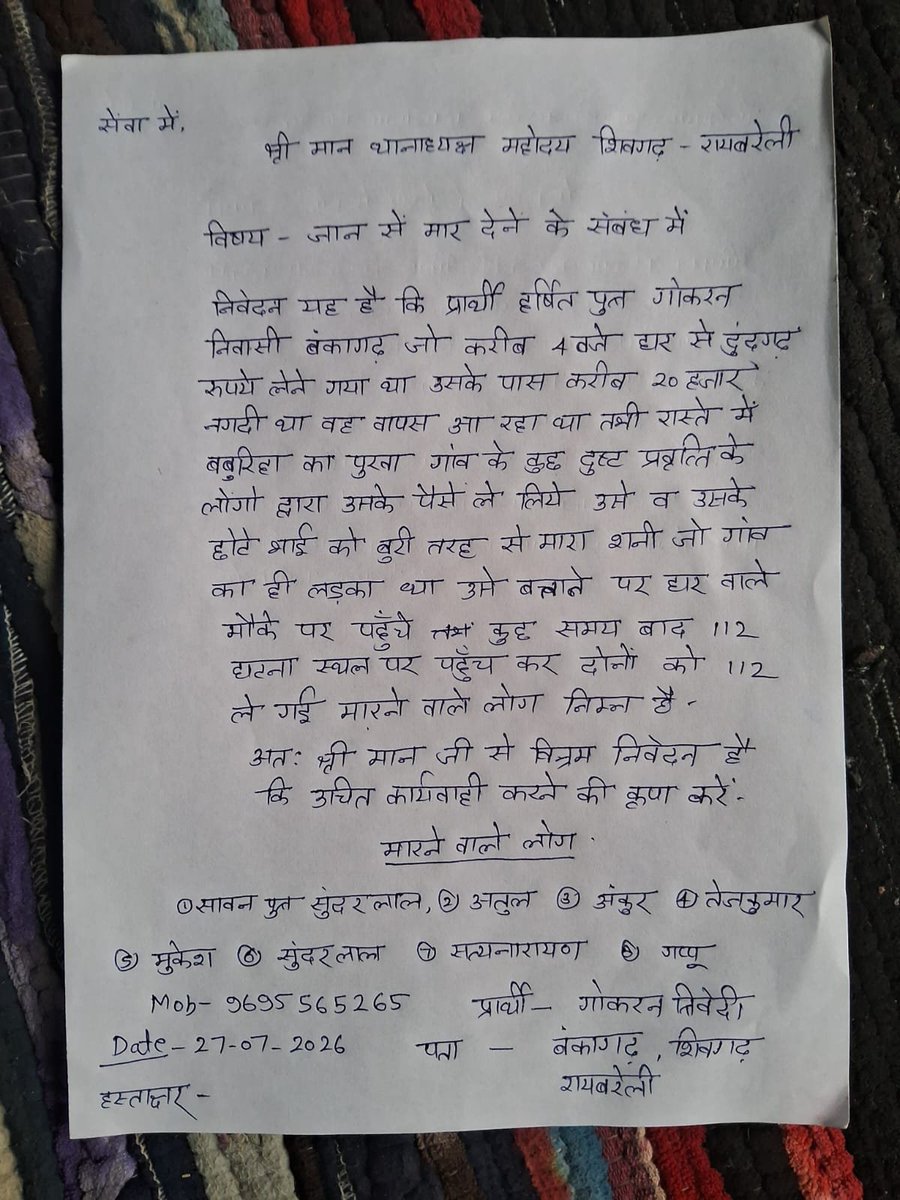 सेवा में,
श्री मान थानाध्यक्ष महोदय शिवगढ़ - रायबरेली
विषय - जान सें मार देने के संबंध में
निवेदन यह है कि प्रार्थी हर्षित पुत्र गोकरन
निवासी बंकागढ़ जो करीब 4 बजे घर से ढुंढगढ़
रुपये लेने गया था उसके पास करीब 20 हजार
नगदी था वह वापस आ रहा था तभी रास्ते में
बबुरिहा का पुरवा गांव के कुछ दुष्ट प्रवृत्ति के
लोंगो द्वारा उसके पैसे ले लिये उसे व उसके
छोटे भाई को बुरी तरह से मारा शनी जो गांव
का ही लड़का था उसे बचाने पर घर वाले
मौके पर पहुँचे कुछ समय बाद 112
घटना स्थल पर पहुँच कर दोनों को 112
ले गई मारने वाले लोग निम्न है -
अतः श्री मान जी से विनम्र निवेदन है
कि उचित कार्यवाही करने की कृपा करें -
मारने वाले लोग .
① सावन पुत्र सुंदरलाल, ② अतुल ③ अंकुर ④ तेजकुमार
⑤ मुकेश ⑥ सुंदरलाल ⑦ सत्यनारायण ⑧ गप्पू
Mob- 9695565265 प्रार्थी - गोकरन त्रिवेदी
Date - 27-07-2026 पता - बंकागढ़, शिवगढ़
रायबरेली
हस्ताक्षर -